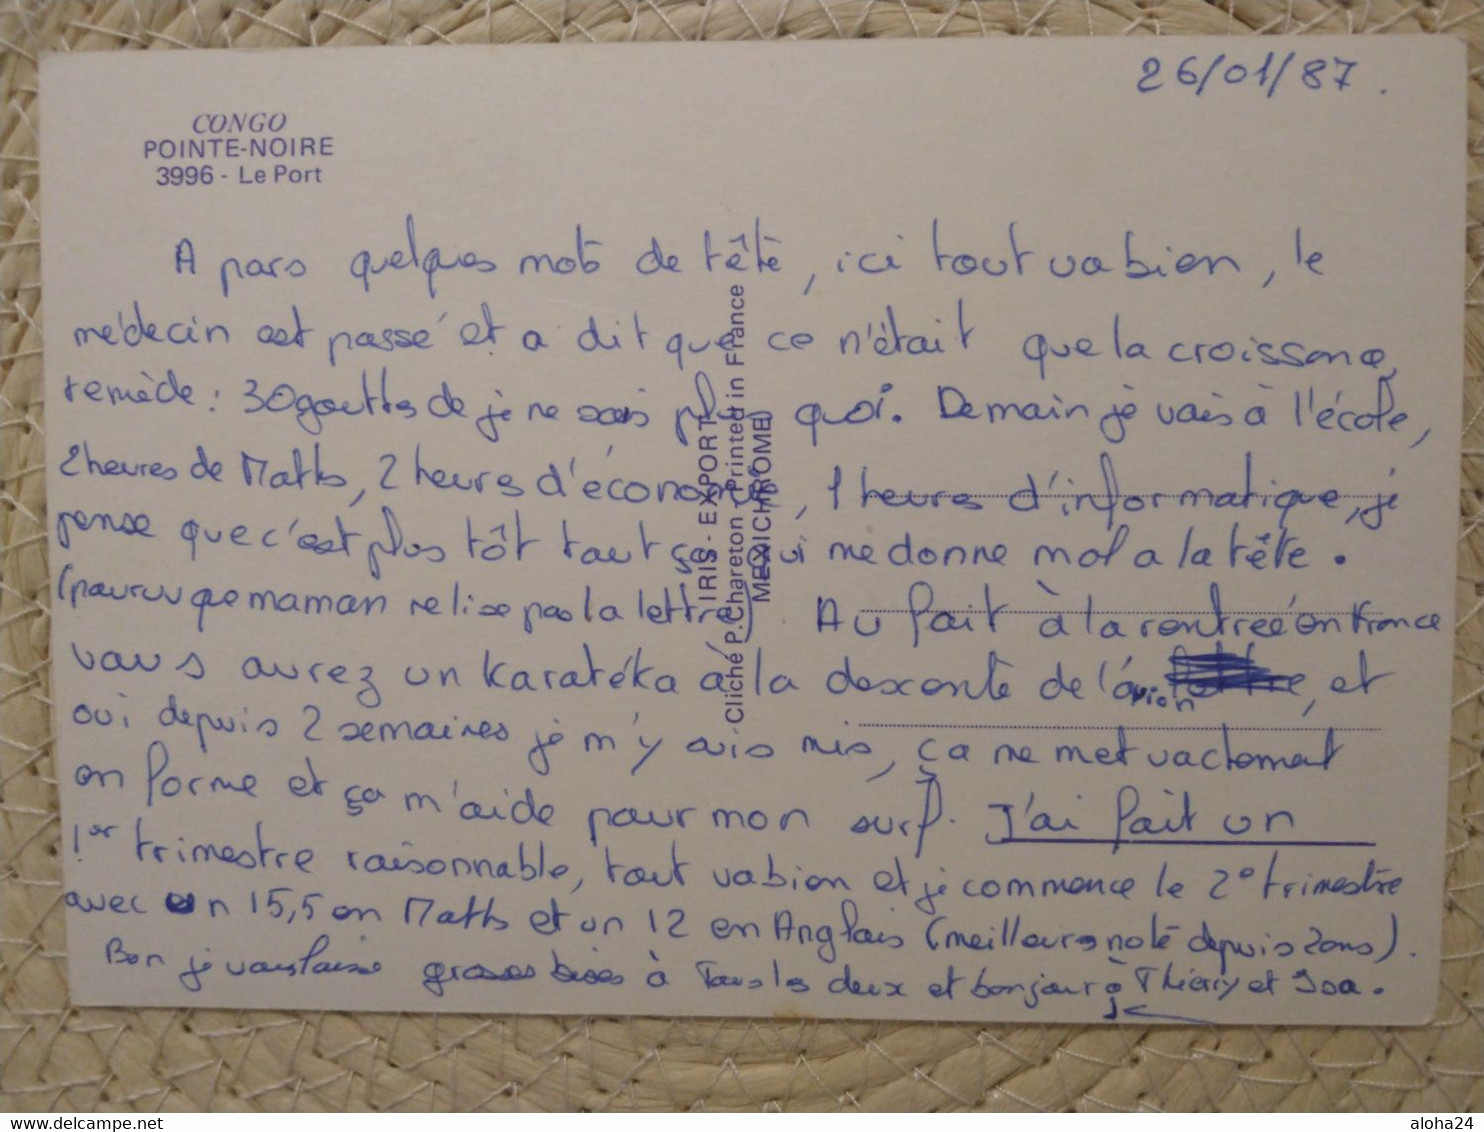 26/01/87.
CONGO
POINTE-NOIRE
3996 - Le Port
A pars quelques mots de tête, ici tout va bien, le
médecin est passé et a dit que ce n'était que la croissance,
remède : 30 gouttes de je ne sais plus quoi. Demain je vais à l'école,
2 heures de Maths, 2 heures d'économie, 1 heures d'informatique, je
pense que c'est plus tôt tout ça qui me donne mal a la tête.
(pourvu que maman relise pas la lettre) Au fait à la rentrée en France
vous aurez un karatéka à la descente de l'avion, et
oui depuis 2 semaines je m'y suis mis, ça me met vactement
en forme et ça m'aide pour mon surf. J'ai fait un
1er trimestre raisonnable, tout va bien et je commence le 2° trimestre
avec un 15,5 en Maths et un 12 en Anglais (meilleure note depuis 2 ans).
Bon je vous laisse grosses bises à Tous les deux et bonjour à Thierry et Isa.
IRIS - EXPORT
Cliché P. Chareton - Printed in France
MEXICHROME
delcampe.net
aloha24